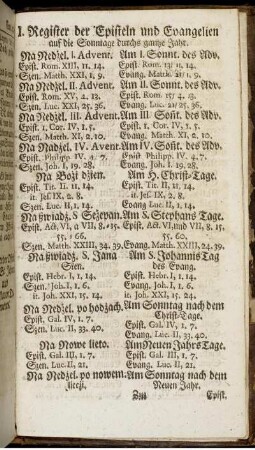 I. Register der Episteln und Evangelien
auf die Sonntage durchs gantze Jahr.
Na Nedzel. I. Advent. Am I. Sonnt. des Adv.
Epist. Rom. XIII, 11, 14. Epist. Rom. 13/ 11, 14.
Szen. Matth. XXI, 1, 9. Evang. Matth. 21/ 1, 9.
Na Nedzel. II. Advent. Am II. Sonnt. des Adv.
Epist. Rom. XV, 4, 13. Epist. Rom. 15/ 4, 13.
Szen. Luc. XXI, 25, 36. Evang. Luc. 21/ 25, 36.
Na Nedzel. III. Advent. Am III. Soñt. des Adv.
Epist. 1. Cor. IV, 1, 5. Epist. 1. Cor. IV, 1, 5.
Szen. Matth. XI, 2, 10. Evang. Matth. XI, 2, 10.
Na Nadzel. IV. Avent. Am IV. Soñt. des Adv.
Epist. Philipp. IV, 4, 7. Epist. Philipp. IV, 4, 7.
Szen. Joh. I, 19, 28. Evang. Joh. I, 19, 28.
Na Bozt dzien. Am H. Christ-Tage.
Epist. Tit. II, 11, 14. Epist. Tit. II, 11, 14.
it. Jes. IX, 2, 8. it. Jes. IX, 2, 8.
Szen. Luc. II, 1, 14. Evang. Luc. II, 1, 14.
Na swiadz. S. Sczepan. Am S. Stephans Tage.
Epist. Act. VI, a VII, 8,-15. Epist. Act. VI, und VII, 8, 15.
55, : 66. 55, 60.
Szen. Matth. XXIII, 34, 39. Evang. Matth. XXIII, 24, 39.
Na swiadz. S. Jana Am S. Johannis Tag
Szen. des Evang.
Epist. Hebr. I, 1, 14. Epist. Hebr. I, 1, 14.
Szen. Joh. I, 1, 14. Ev. Joh. I, 1, 6.
it. Joh. XXI, 15, 14. it. Joh. XXI, 15, 24.
Na Nedzel. po hodzach. Am Sonntag nach dem
Christ-Tage.
Epist. Gal. IV, 1, 7. Epist. Gal. IV, 1, 7.
Szen. Luc. II, 33, 40. Evang. Luc. II, 33, 40.
Na Nowe lieto. Am Neuen Jahrs Tage.
Epist. Gal. III, 1, 7. Epist. Gal. III, 1, 7.
Szen. Luc. II, 21. Evang. Luc. II, 21.
Na Nedzel. po nowem. Am Sonntag nach dem
Neuen Jahr.
Epist.